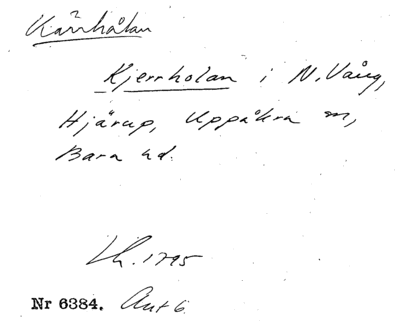 Kärrhålan
Kjerrholan i N. Vång,
Hjärup, Uppåkra sn,
Bara hd.
Lh. 1795
Nr 6384. Akt 6.